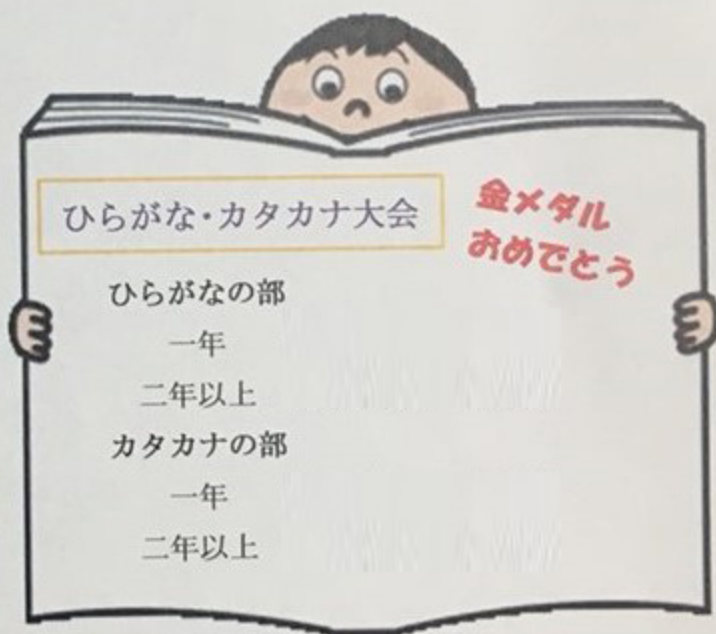 ひらがな・カタカナ大会
金メダル
おめでとう
ひらがなの部
一年
二年以上
カタカナの部
一年
二年以上